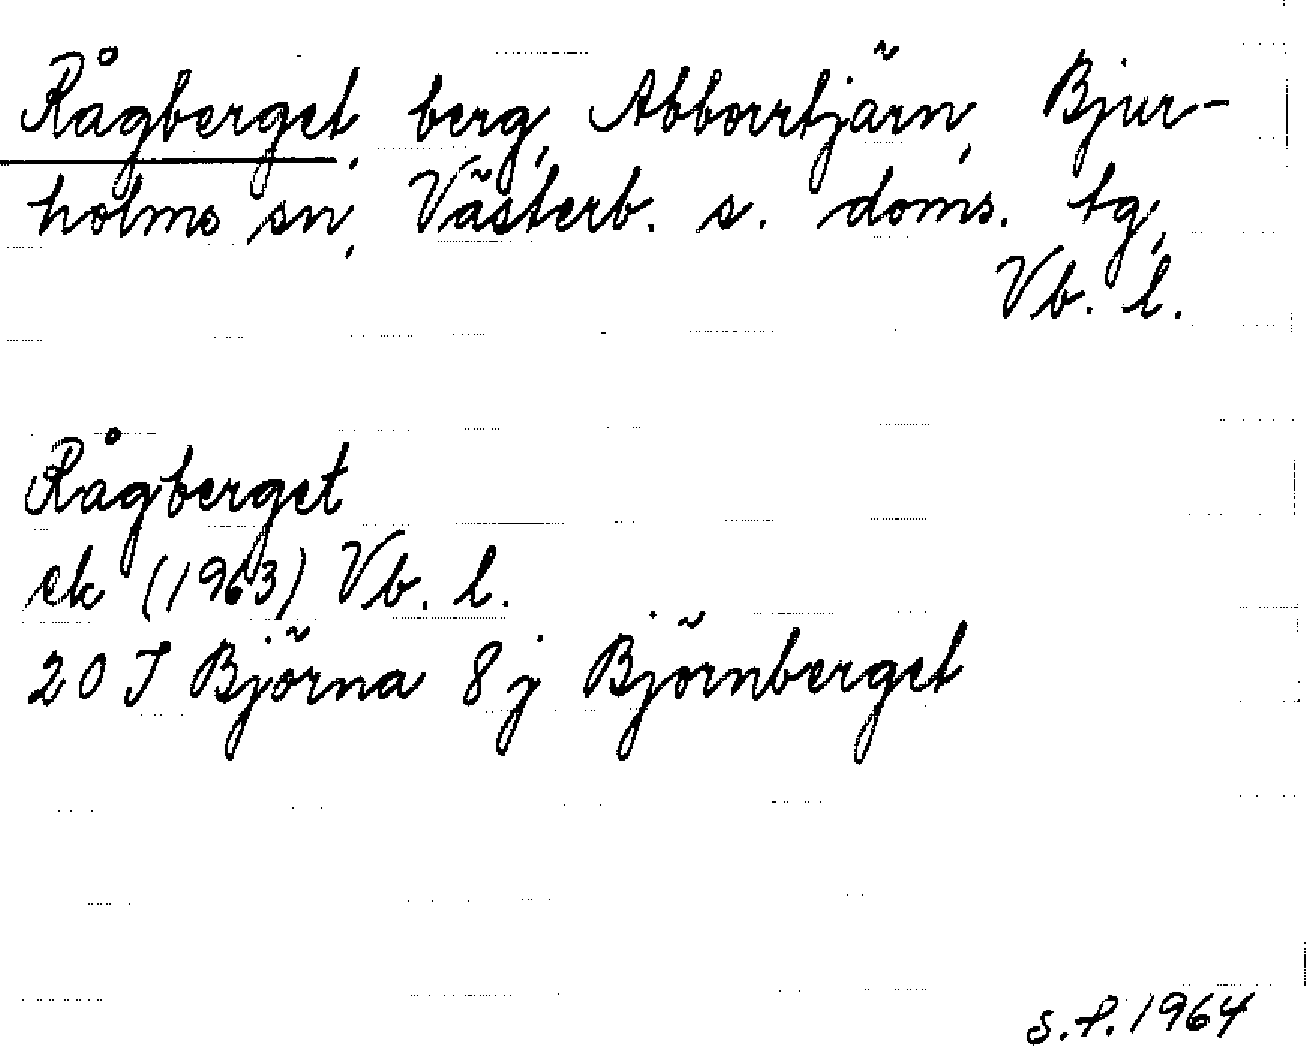 Rågberget, berg, Abborrtjärn, Bjur-
holms sn, Västerb. s. doms. tg,
Vb. l.
Rågberget
ek (1963) Vb. l.
20 J Björna 8j Björnberget
S.P. 1964